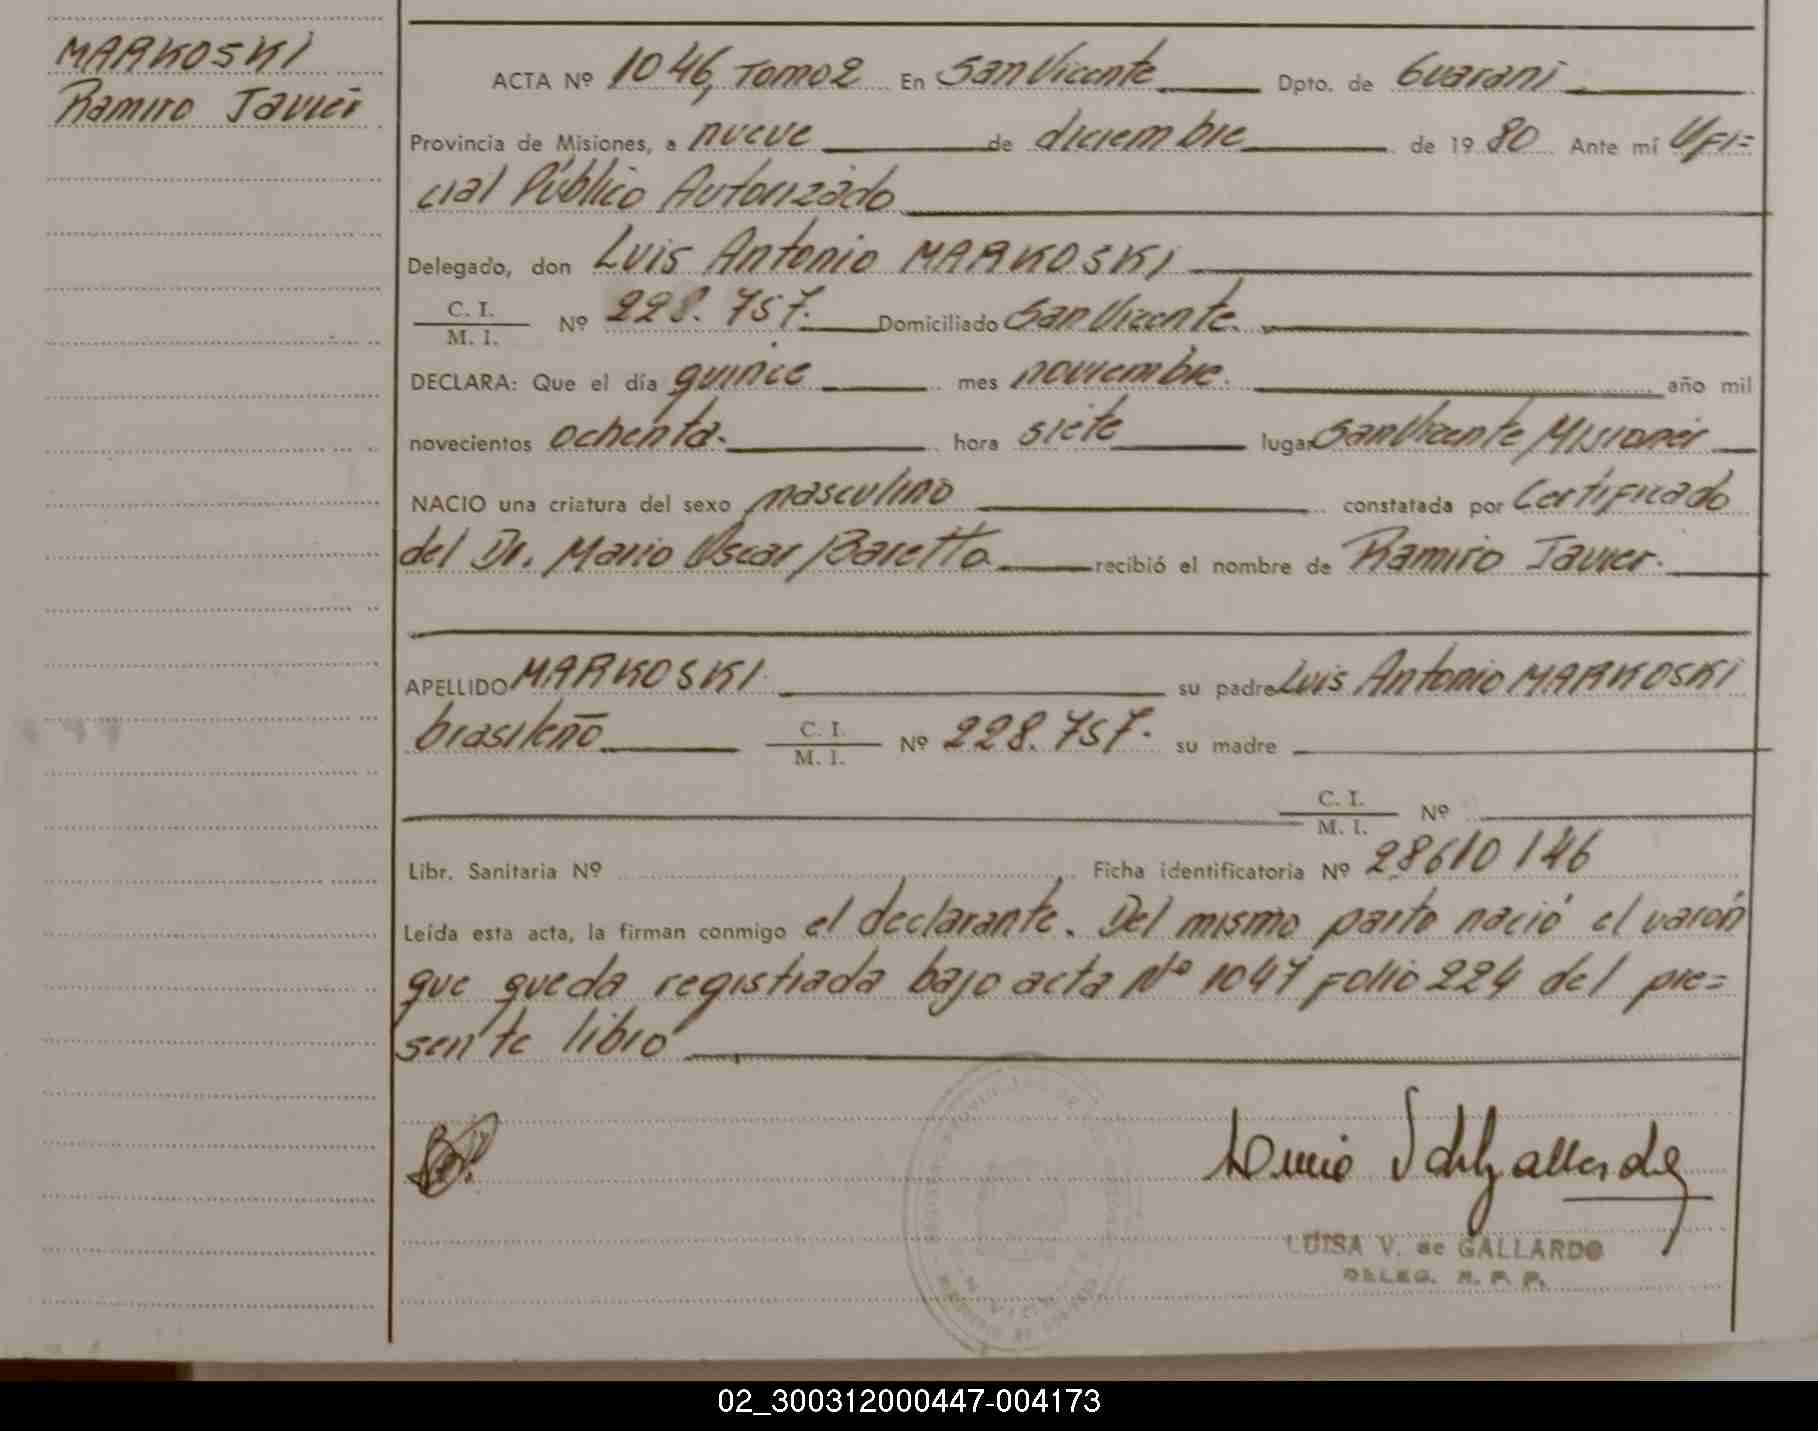 MARKOSKI
Ramiro Javier
ACTA Nº 1046, Tomo 2 En San Vicente Dpto. de Guaraní
Provincia de Misiones, a nueve de diciembre de 1980 Ante mí Ofi=
cial Público Autorizado
Delegado, don Luis Antonio MARKOSKI
C. I.
M. I. Nº 228.757. Domiciliado San Vicente.
DECLARA: Que el día quince mes noviembre. año mil
novecientos ochenta. hora siete lugar San Vicente Misiones
NACIO una criatura del sexo masculino constatada por Certificado
del Dr. Mario Oscar Baretto recibió el nombre de Ramiro Javier.
APELLIDO MARKOSKI. su padre Luis Antonio MARKOSKI
brasileño C. I.
M. I. Nº 228.757. su madre
C. I.
M. I. Nº
Libr. Sanitaria Nº Ficha identificatoria Nº 28610146
Leída esta acta, la firman conmigo el declarante. Del mismo parto nació el varón
que queda registrada bajo acta Nº 1047 folio 224 del pre=
sente libro
LUISA V. de GALLARDO
DELEG. R. P. P.
02_300312000447-004173